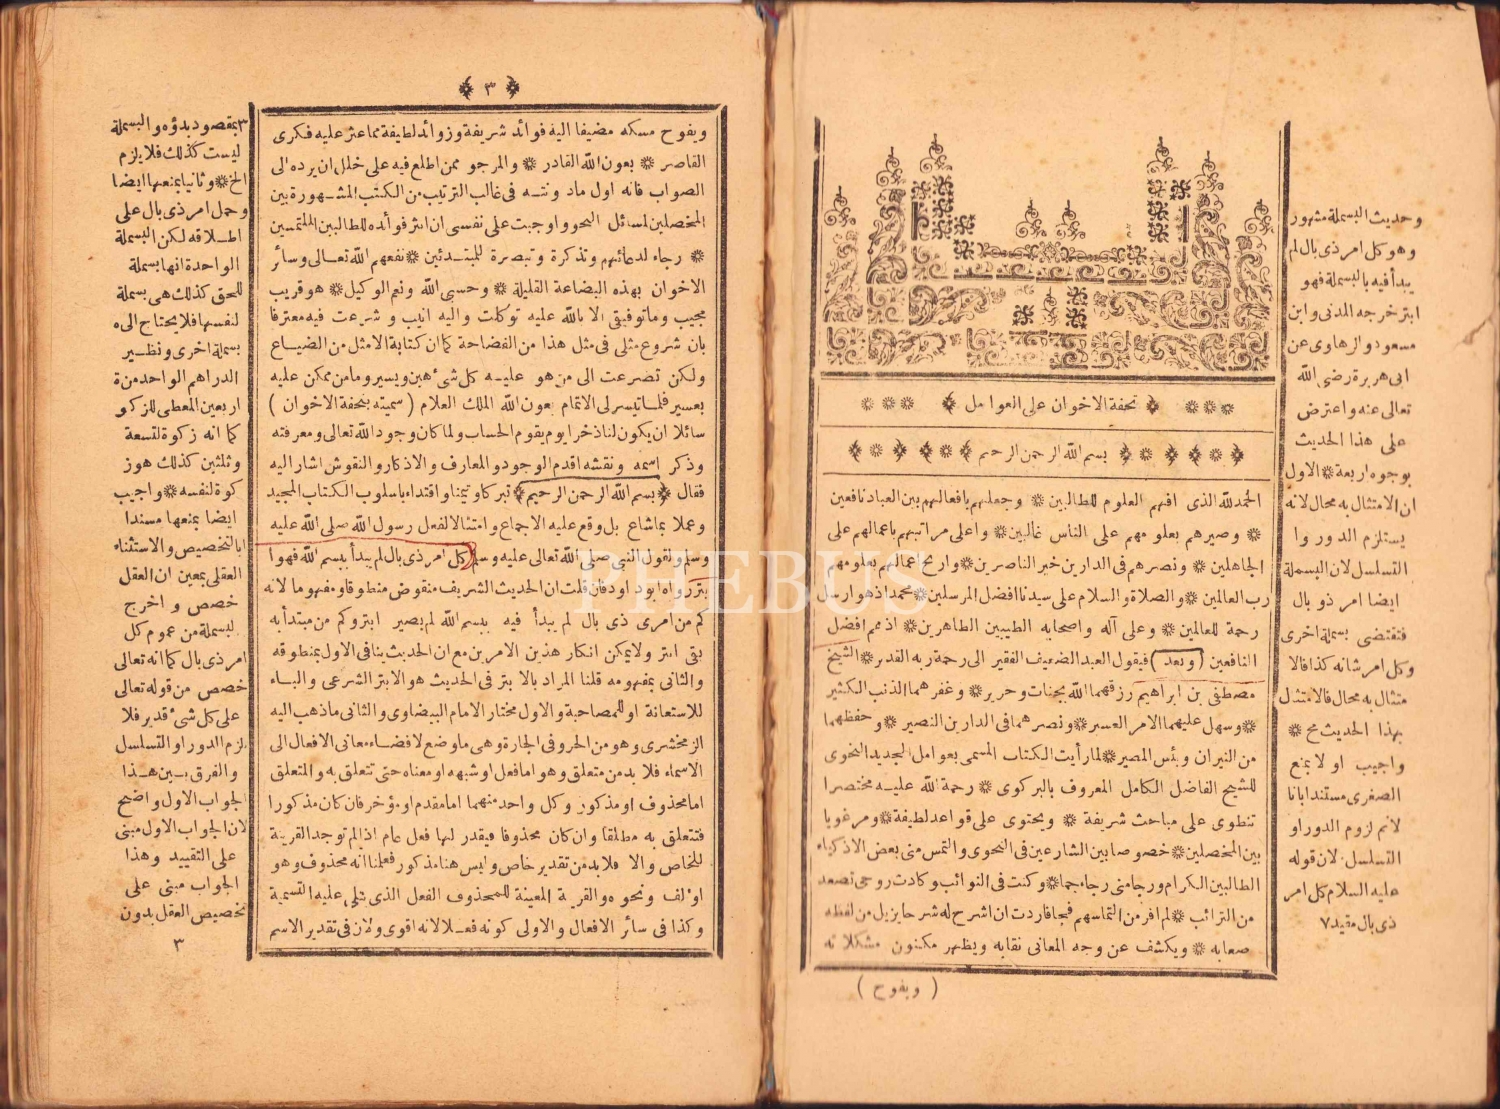 تحفة الاخوان على العوامل
بسم الله الرحمن الرحيم
الحمد لله الذى افهم العلوم للطالبين وجعلهم بافعالهم بين العباد نافعين
وصيرهم بعلومهم على الناس غالبين واعلى مراتبهم باعمالهم على
الجاهلين ونصرهم فى الدارين خير الناصرين واربح اعمالهم بعلومهم
رب العالمين والصلاة والسلام على سيدنا افضل المرسلين محمد اذ هو ارسل
رحمة للعالمين وعلى آله واصحابه الطيبين الطاهرين اذ هم افضل
النافعين (وبعد) فيقول العبد الضعيف الفقير الى رحمة ربه القدير الشيخ
مصطفى بن ابراهيم رزقهما الله بجنات وحرير وغفر هما الذنب الكثير
وسهل عليهما الامر العسير ونصرهما فى الدارين النصير وحفظهما
من النيران وبئس المصير لما رأيت الكتاب المسمى بعوامل الجديد النحوى
للشيخ الفاضل الكامل المعروف بالبركوى رحمة الله عليه مختصرا
تنطوى على مباحث شريفة ويحتوى على قواعد لطيفة ومرغوبا
بين المحصلين خصوصا بين الشارعين فى النحوى والتمس منى بعض الاذكياء
الطالبين الكرام ورجا منى رجاء جما وكنت فى النوائب وكادت روحى تصعد
من الترائب لم افر من التماسهم فجافاردت ان اشرح له شرحا يزيل من لفظه
صعابه ويكشف عن وجه المعانى نقابه ويظهر مكنون مشكلاته
(ويفوح)
وحديث البسملة مشهور
وهو كل امر ذى بال لم
يبدأ فيه بالبسملة فهو
ابتر خرجه المدنى وابن
مسعود والرهاوى عن
ابى هريرة رضى الله
تعالى عنه واعترض
على هذا الحديث
بوجوه اربعة الاول
ان الامتثال به محال لانه
يستلزم الدور وا
التسلسل لان البسملة
ايضا امر ذو بال
فتقتضى بسملة اخرى
وكل امر شانه كذا فالا
متثال به محال فالامتثل
بهذا الحديث مح
واجيب اولا بمنع
الصغرى مستندا بانا
لانم لزوم الدور او
التسلسل لان قوله
عليه السلام كل امر
ذى بال مقيد ٧
٣
ويفوح مسكه مضيفا اليه فوائد شريفة وزوائد لطيفة مما عثر عليه فكرى
القاصر بعون الله القادر والمرجو ممن اطلع فيه على خلل ان يرده الى
الصواب فانه اول ما دونته فى غالب الترتيب من الكتب المشهورة بين
المحصلين لمسائل النحو واوجبت على نفسى ان انثر فوائده للطالبين الملتمسين
رجاء لدعائهم وتذكرة وتبصرة للمبتدئين نفعهم الله تعالى وسائر
الاخوان بهذه البضاعة القليلة وحسبى الله ونعم الوكيل هو قريب
مجيب وما توفيقى الا بالله عليه توكلت واليه انيب وشرعت فيه معترفا
بان شروع مثلى فى مثل هذا من الفضاحة كما ان كتابة الامثل من الضياع
ولكن تضرعت الى من هو عليه كل شئ هين ويسير وما من ممكن عليه
بعسير فلما تيسر لى الاتمام بعون الله الملك العلام (سميته بتحفة الاخوان)
سائلا ان يكون لنا ذخرا يوم يقوم الحساب ولما كان وجود الله تعالى ومعرفته
وذكر اسمه ونقشه اقدم الوجود والمعارف والاذكار والنقوش اشار اليه
فقال (بسم الله الرحمن الرحيم) تبركا وتيمنا واقتداء باسلوب الكتاب المجيد
وعملا بما شاع بل وقع عليه الاجماع وامتثالا لفعل رسول الله صلى الله عليه
وسلم ولقول النبى صلى الله تعالى عليه وسلم (كل امر ذى بال لم يبدأ ببسم الله فهو ا
بتر رواه ابو داود فان قلت ان الحديث الشريف منقوض منطوقا ومفهوما لانه
كم من امرى ذى بال لم يبدأ فيه ببسم الله لم يصير ابتر وكم من مبتدأ به
بقى ابتر ولا يمكن انكار هذين الامرين مع ان الحديث ينافى الاول بمنطوقه
والثانى بمفهومه قلنا المراد بالابتر فى الحديث هو الابتر الشرعى والباء
للاستعانة او للمصاحبة والاول مختار الامام البيضاوى والثانى ما ذهب اليه
الزمخشرى وهو من الحروف الجارة وهى ما وضع لافضاء معانى الافعال الى
الاسماء فلا بد من متعلق وهو اما فعل او شبهه او معناه حتى تتعلق به والمتعلق
اما محذوف او مذكور وكل واحد منهما اما مقدم او مؤخر فان كان مذكورا
فتتعلق به مطلقا وان كان محذوفا فيقدر لها فعل عام اذا لم توجد القرينة
للخاص والا فلا بد من تقدير خاص وليس هنا مذكور فعلنا انه محذوف وهو
اؤلف ونحوه والقرينة المعينة للمحذوف الفعل الذى تلى عليه التسمية
وكذا فى سائر الافعال والاولى كونه فعلا لانه اقوى ولان فى تقدير الاسم
٣ بمقصود بدؤه والبسملة
ليست كذلك فلا يلزم
الخ وثانيا بمنعها ايضا
وحمل امر ذى بال على
اطلاقه لكن البسملة
الواحدة انها بسملة
للحق كذلك هى بسملة
لنفسها فلا يحتاج الى
بسملة اخرى ونظير
الدراهم الواحد من
اربعين المعطى للزكو
كما انه زكوة لتسعة
وثلثين كذلك هو ز
كوة لنفسه واجيب
ايضا بمنعها مسندا
بالتخصيص والاستثناء
العقلى بمعين ان العقل
خصص واخرج
البسملة من عموم كل
امر ذى بال كما انه تعالى
خصص من قوله تعالى
على كل شئ قدير فلا
يلزم الدور او التسلسل
والفرق بين هذا
الجواب الاول واضح
لان الجواب الاول مبنى
على التقييد وهذا
الجواب مبنى على
تخصيص العقل بدون
٣
PHEBUS